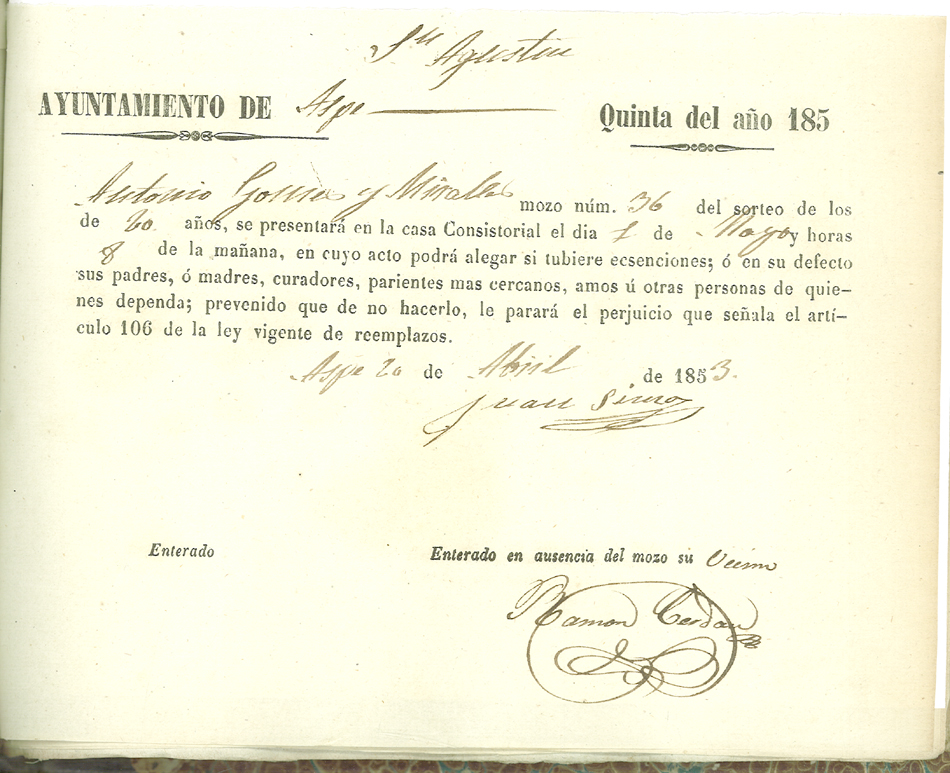 Sn Agustin
AYUNTAMIENTO DE Aspe Quinta del año 185
Antonio y Miralles mozo núm. 36 del sorteo de los
de 20 años, se presentará en la casa Consistorial el dia 1 de Mayo y horas
8 de la mañana, en cuyo acto podrá alegar si tubiere ecsenciones; ó en su defecto
sus padres, ó madres, curadores, parientes mas cercanos, amos ú otras personas de quie-
nes dependa; prevenido que de no hacerlo, le parará el perjuicio que señala el artí-
culo 106 de la ley vigente de reemplazos.
Aspe 20 de Abril de 1853.
Juan
Enterado Enterado en ausencia del mozo su Vecino
Ramon Cerdan